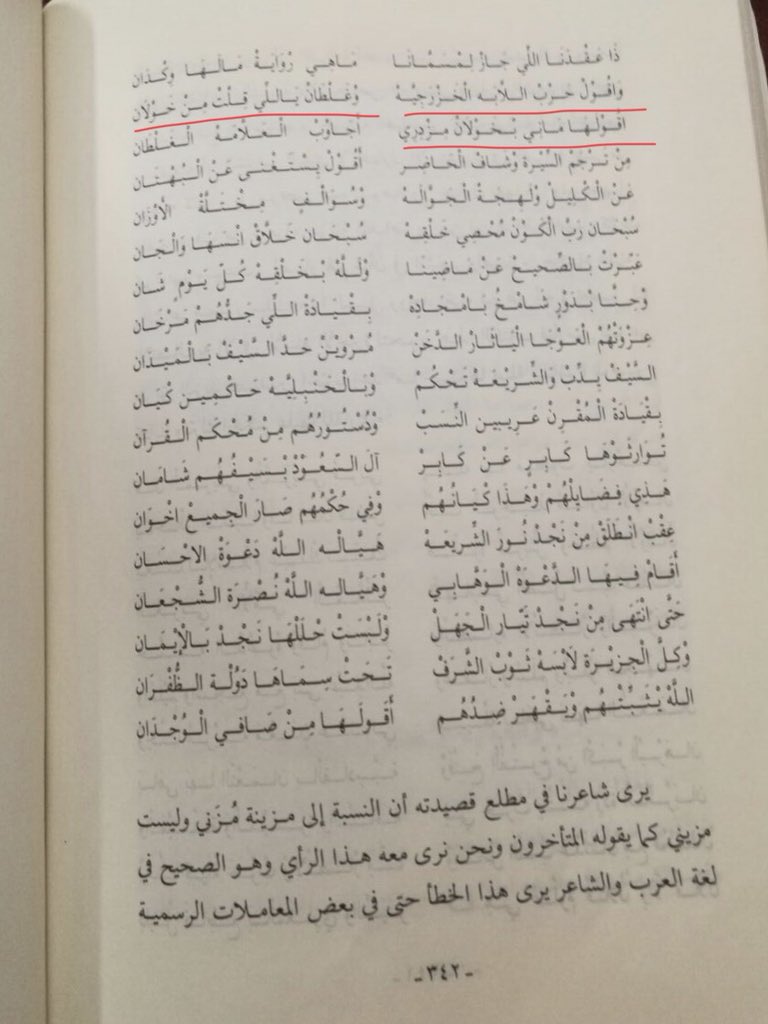 ذَا عَقْدَنَا اللِّي جَازْ لِمْسَمَّانَا مَاهِي رْوَايَةْ مَالَهَا وِكْدَان
وَاقُوْل حَرْبْ اللَّابَه الْخَزْرَجِيَّهْ وْغَلْطَانْ يَاللِّي قِلْتْ مِنْ خَوْلَان
أَقُوْلَهَا مَابِي بْخَوْلَانْ مِزْدِرِي أَجَاوُبْ الْعَلَّامَهْ الْغَلْطَان
مِنْ تَرْجَمْ السِّيْرَةْ وْشَافْ الْحَاضِر أَقُوْل يِسْتَغْنِي عَنْ الْبُهْتَان
عَنْ الْكَلِيْل وْلَهْجَةْ الْجَوَّالَهْ وْسُوَالْفٍ مِخْتَلَّةْ الْأَوْزَان
سُبْحَان رَبْ الْكَوْنْ مُحْصِي خَلْقِهْ سُبْحَان خَلَّاقْ انْسَهَا وَالْجَان
عَبَّرْتْ بَالصَّحِيحْ عَنْ مَاضِيْنَا وَلِلَّهْ بْخَلْقِهْ كُلّ يَوْمٍ شَان
وْحِنَّا بْدَوْرٍ شَامْخٍ بَامْجَادِهْ بِقْيَادَةْ اللِّي جَدُّهُمْ مَرْخَان
عِزْوَتْهُمْ الْعَوْجَا الْيَاثَارْ الدَّخَنْ مُرْوِيْنْ حَدَّ السَّيْفْ بَالْمَيْدَان
السَّيْفْ يِذْبْ وَالشَّرِيْعَهْ تَحْكُمْ وْبَالْحَنْبِلِيَّهْ حَاكْمِين كْيَان
بِقْيَادَةْ الْمُقْرِنْ عَرِيبِين النِّسَبْ وْدُسْتُورُهُم مِنْ مُحْكَم الْقُرْآن
تُوَارِثَوْهَا كَابِرٍ عَنْ كَابِرْ آلَ السَّعُوْدْ بْسَيْفُهُم شَامَان
هَذِي فِضَايِلْهُمْ وْهَذَا كْيَانُهُم وْفِي حُكْمُهُم صَارَ الْجِمِيعْ اخْوَان
عِقْبْ انْطَلَقْ مِنْ نَجْدْ نُورَ الشَّرِيعَهْ هَيَّالْه اللَّهْ دَعْوَةْ الاحْسَان
أَقَامْ فِيهَا الدَّعْوَةْ الْوَهَّابِي وْهَيَّاله اللَّهْ نُصْرَةْ الشُّجْعَان
حَتَّى انْتَهَى مِنْ نَجْدْ تَيَّار الْجَهَلْ وْلَبْسَتْ حْلَلْهَا نَجْدْ بَالْإِيْمَان
وْكِلّ الْجِزِيْرَةْ لَابْسَهْ ثَوْبْ الشَّرَفْ تَحَتْ سِمَاهَا دَوْلَةْ الظُّفْرَان
اللَّهْ يْثَبِّتْهُم وْيَقْهَرْ ضِدُّهُم أَقُولَهَا مِنْ صَافي الْوُجْدَان
يرى شاعرنا في مطلع قصيدته أن النسبة إلى مزينة مُزَني وليست
مزيني كما يقوله المتأخرون ونحن نرى معه هذا الرأي وهو الصحيح في
لغة العرب والشاعر يرى هذا الخطأ حتى في بعض المعاملات الرسمية
- ٣٤٢ -